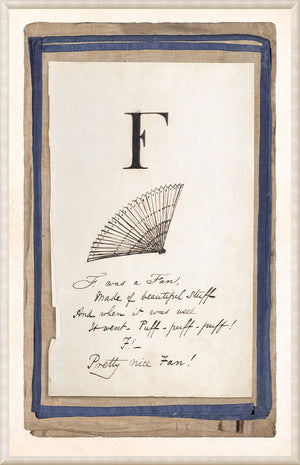 F
F. was a Fan,
Made of beautiful Stuff
And when it was used
It went - Puff-puff-puff!
F!_
Pretty nice Fan!